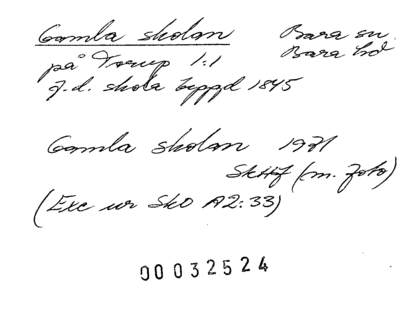 Gamla skolan Bara sn.
på Torup 1:1 Bara hd
f.d. skola byggd 1845
Gamla skolan 1971
SkHf (m. foto)
(Exc ur SkO A2:33)
00032524